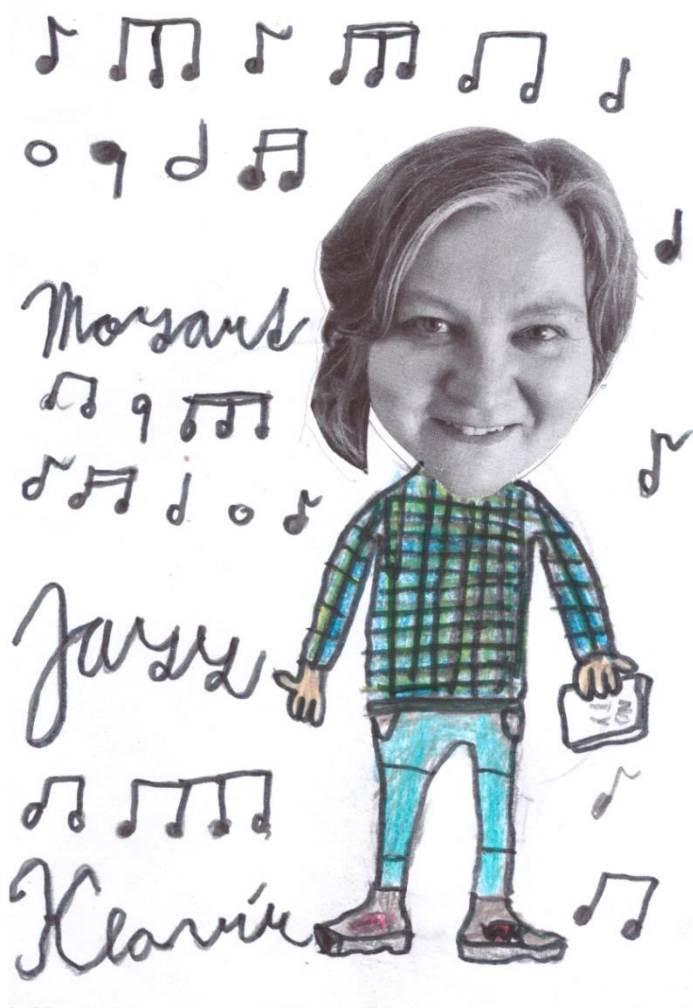 Mozart
Jazz
NO
TY
Klavír